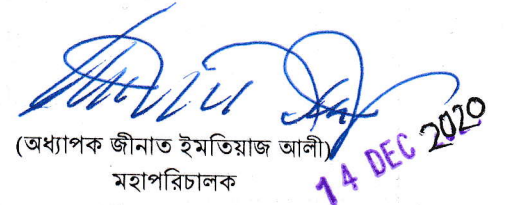 (অধ্যাপক জীনাত ইমতিয়াজ আলী)
মহাপরিচালক
14 DEC 2020